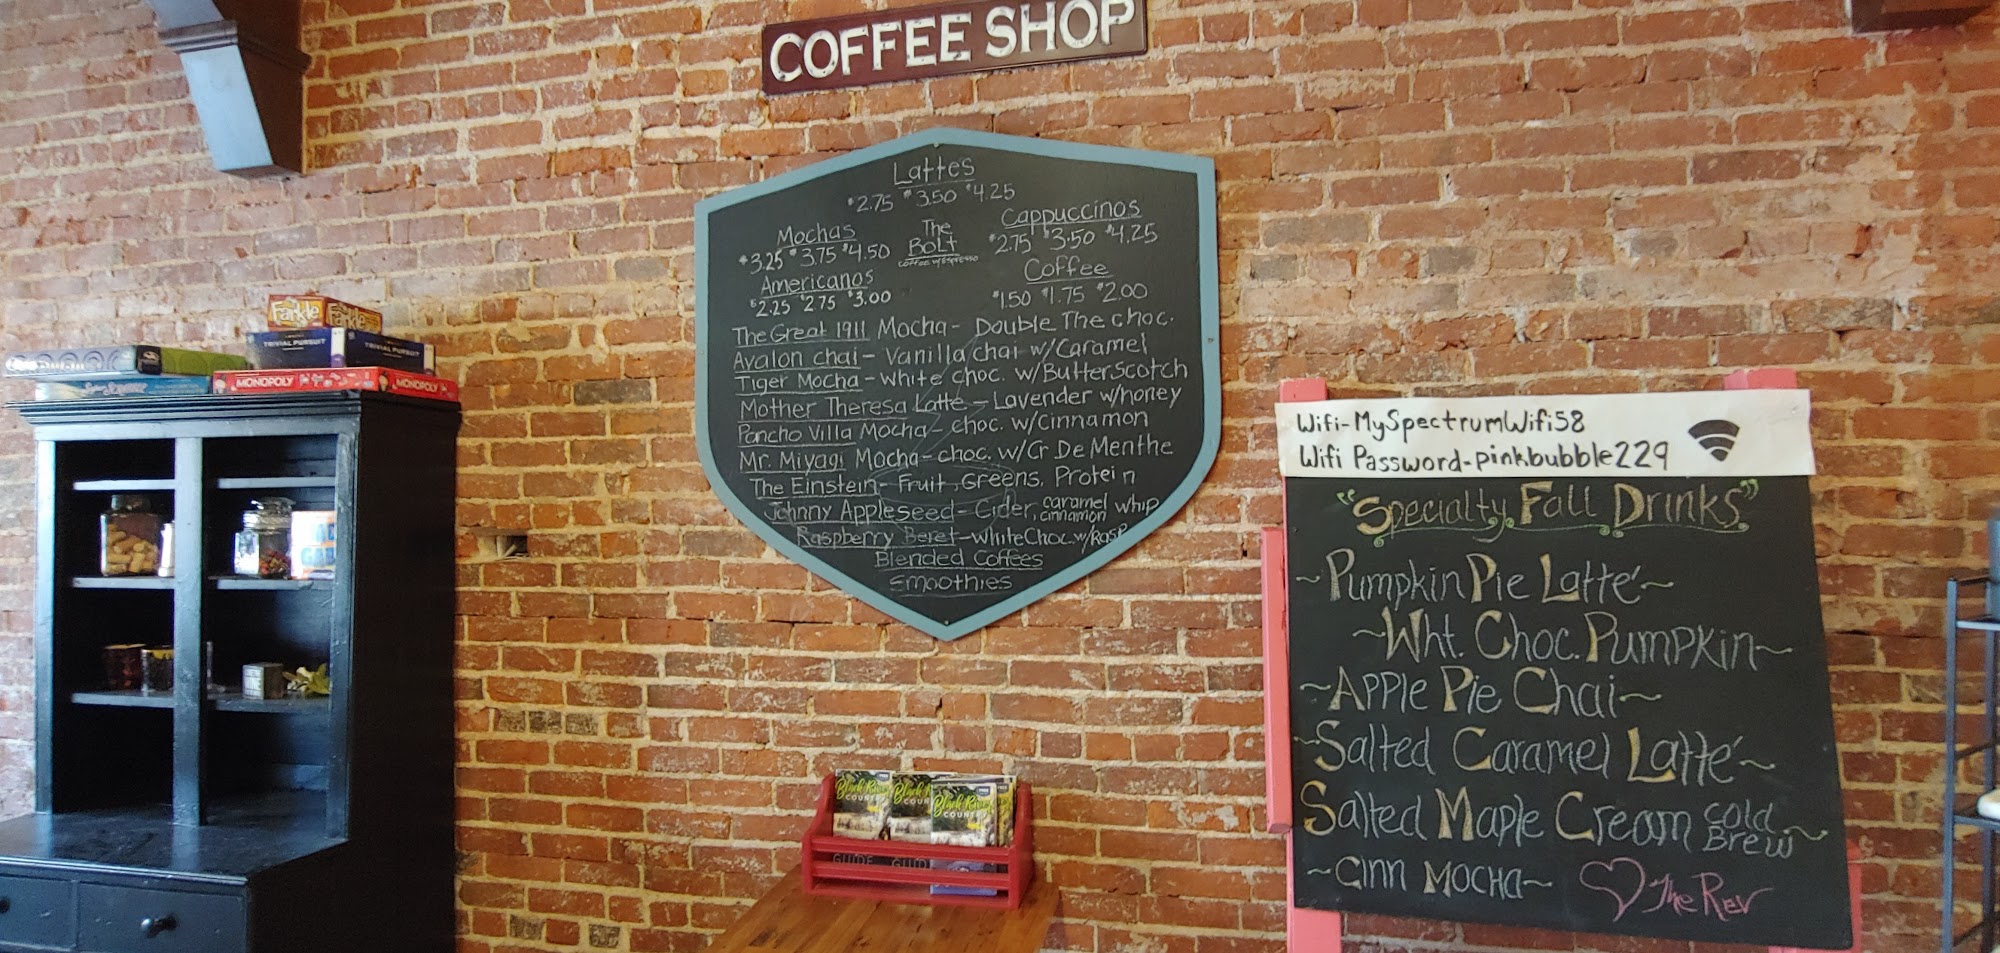 COFFEE SHOP
Lattes
$2.75 $3.50 $4.25
Mochas
$3.25 $3.75 $4.50
The
BOLT
coffee w/espresso
Cappuccinos
$2.75 $3.50 $4.25
Americanos
$2.25 $2.75 $3.00
Coffee
$1.50 $1.75 $2.00
The Great 1911 Mocha - Double The choc.
Avalon chai - Vanilla chai w/Caramel
Tiger Mocha - white choc. w/ButterScotch
Mother Theresa Latte - Lavender w/honey
Pancho Villa Mocha - choc. w/Cinnamon
Mr. Miyagi Mocha - choc. w/Cr De Menthe
The Einstein - Fruit, Greens, Protein
Johnny Appleseed - Cider, caramel cinnamon whip
Raspberry Beret - white Choc. w/Rasp
Blended Coffees
Smoothies
Wifi-MySpectrumWifi58
Wifi Password-pinkbubble229
"Specialty Fall Drinks"
~Pumpkin Pie Latté~
~Wht. Choc. Pumpkin~
~Apple Pie Chai~
~Salted Caramel Latté~
Salted Maple Cream Cold Brew~
~Cinn Mocha~
The Rev
Farkle Farkle
TRIVIAL PURSUIT TRIVIAL PURSUIT
MONOPOLY MONOPOLY
Black River
COUNTRY
Black River
COUN
Black River
COUNTRY
GUIDE GUIDE